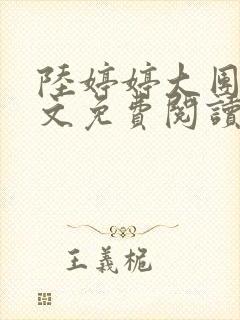 陸婷婷大團
文免費閱讀
王義梔